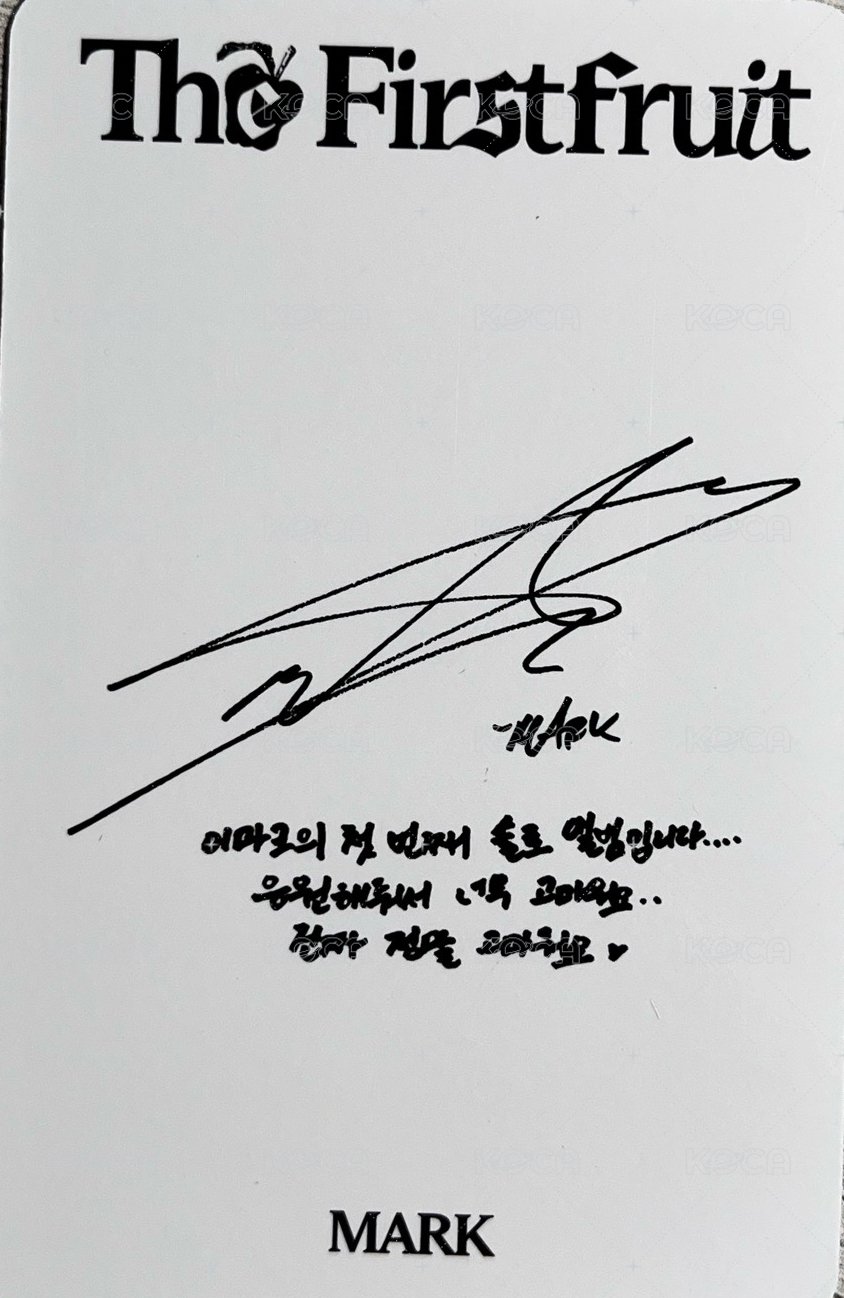 The Firstfruit
-MARK
이마크의 첫 번째 솔로 앨범입니다....
응원해줘서 너무 고마워요..
진짜 정말 고마워요♥
MARK
KOCA